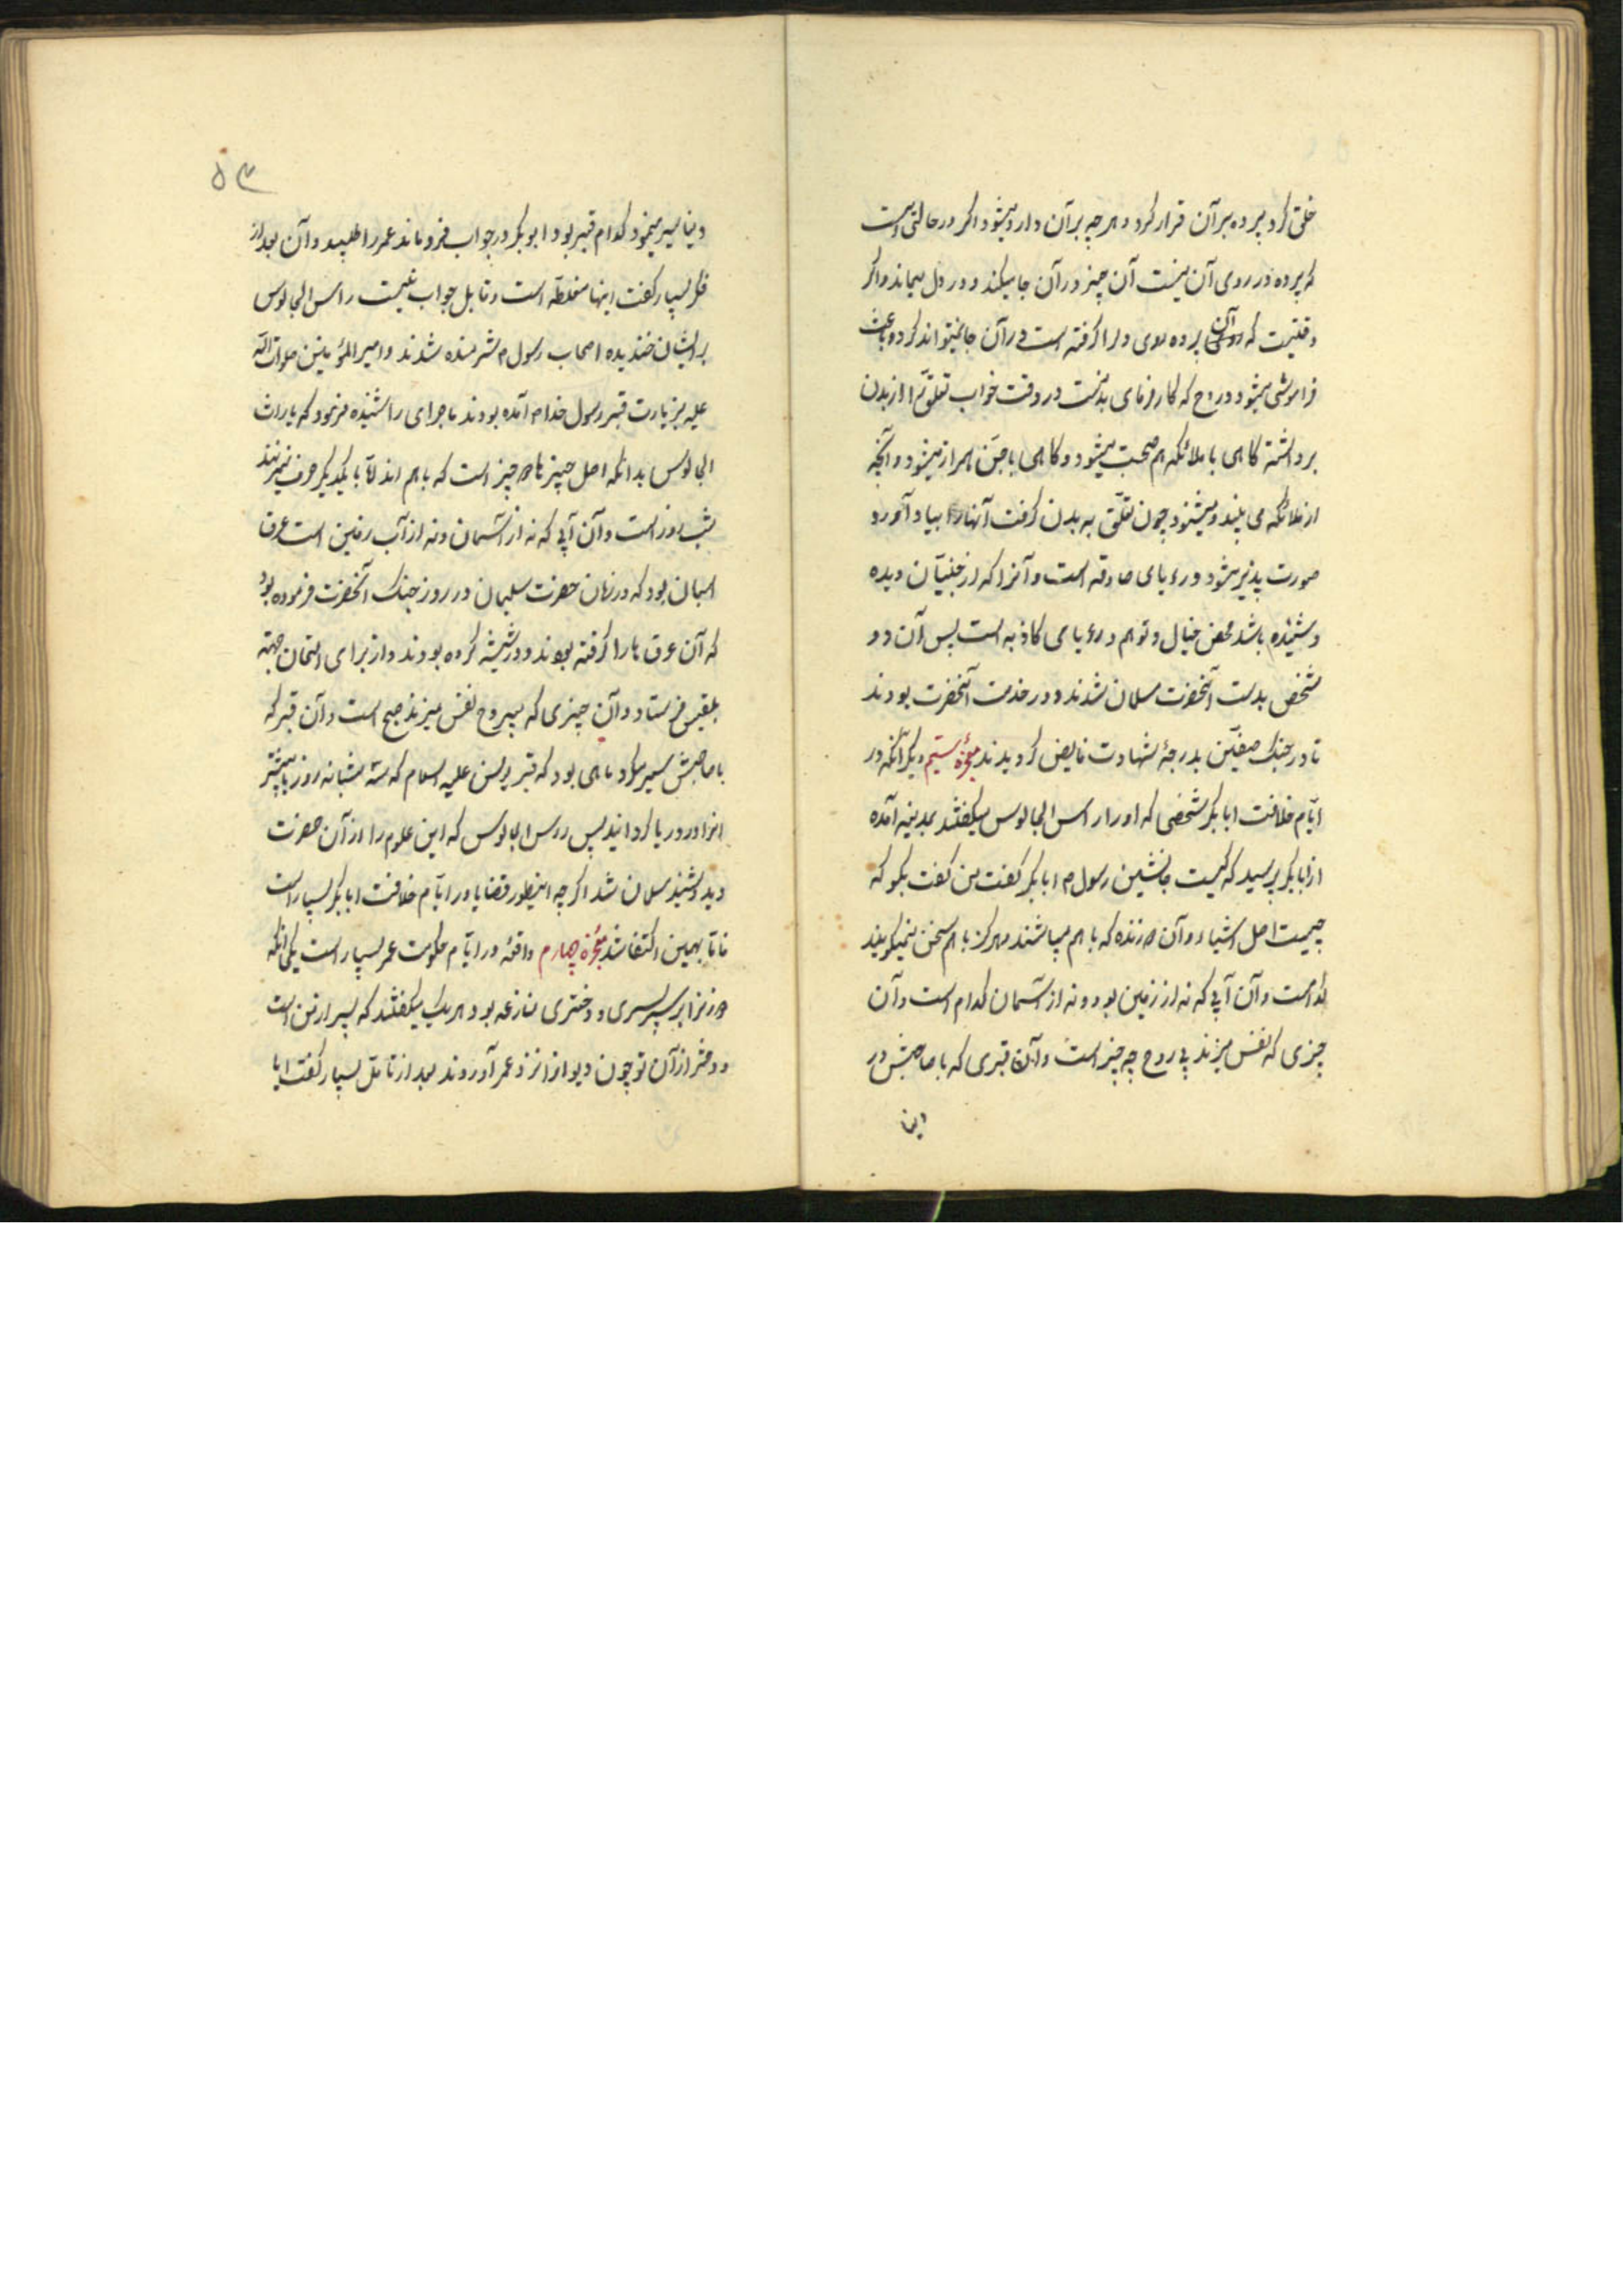 خلق کرد و پرده بر آن قرار کرد و هر چه بر آن وارد میشود اکر در حالتی است
که پرده در روی آن نیست آن چیز در آن جا میکند و در دل میماند و اکر
وقتیست که پرده روی دل را کرفته است در آن جا نمیتواند کرد و باعث
فراموشی میشود و روح که کار فرمای بدنست در وقت خواب تعلق را از بدن
برداشته کاهی با ملائکه هم صحبت میشود و کاهی با جن همراز میشود و آنچه
از ملائکه می بیند و میشنود چون تعلق به بدن کرفت آنها را بیاد آورد و
صورت پذیر میشود و رءیای صادقه است و آنرا که از جنیان دیده
و شنیده باشد محض خیال و توهم و رءیای کاذبه است پس آن دو
شخص بدست آنحضرت مسلمان شدند و در خدمت آنحضرت بودند
تا در جنک صفین بدرجهٔ شهادت فایض کردیدند معجزه سیم دیکر آنکه در
ایام خلافت ابابکر شخصی که او را راس الجالوس میکفتند بمدینه آمده
از ابابکر پرسید که کیست جانشین رسول م ابابکر کفت من کفت بکو که
چیست اصل اشیاء و آن دو زنده که با هم میباشند و هرکز با هم سخن نمیکویند
کدامست و آن آبی که نه از زمین بود و نه از آسمان کدام است و آن
چیزی که نفس میزند بی روح چه چیز است و آن قبری که با صاحبش در
دنیا
۵۳
دنیا سیر مینمود کدام قبر بود ابوبکر در جواب فرو ماند عمر را طلبید و آن بعد از
فکر بسیار کفت اینها مغلطه است و قابل جواب نیست راس الجالوس
بر ایشان خندیده اصحاب رسول م شرمنده شدند و امیر المؤمنین صلوات الله
علیه بزیارت قبر رسول خدا م آمده بودند ماجرای را شنیده فرمود که یا راس
الجالوس بدانکه اصل چیزها دو چیز است که با هم اند امّا با یکدیکر حرف نمیزنند
شب و روز است و آن آبی که نه از آسمان و نه از آب زمین است عرق
اسبان بود که در زمان حضرت سلیمان در روز جنک آنحضرت فرموده بود
که آن عرق ها را کرفته بودند و در شیشه کرده بودند و از برای امتحان جهته
بلقیس فرستاد و آن چیزی که بیروح نفس میزند صبح است و آن قبر که
با صاحبش سیر میکرد ماهی بود که قبر یونس علیه السلام که سه شبانه روز یا بیشتر
او را در دریا کردانید پس راس الجالوس که این علوم را از آن حضرت
دید و شنید مسلمان شد اکر چه اینطور قضایا در ایام خلافت ابابکر بسیار است
فاما بهمین اکتفا شد معجزه چهارم واقعه در ایام حکومت عمر بسیار است یکی آنکه
دو زن را بر سر پسری و دختری منازعه بود هر یک میکفتند که پسر از من است
و دختر از آن تو چون دیوان را نزد عمر آوردند بعد از تامّل بسیار کفت ایا